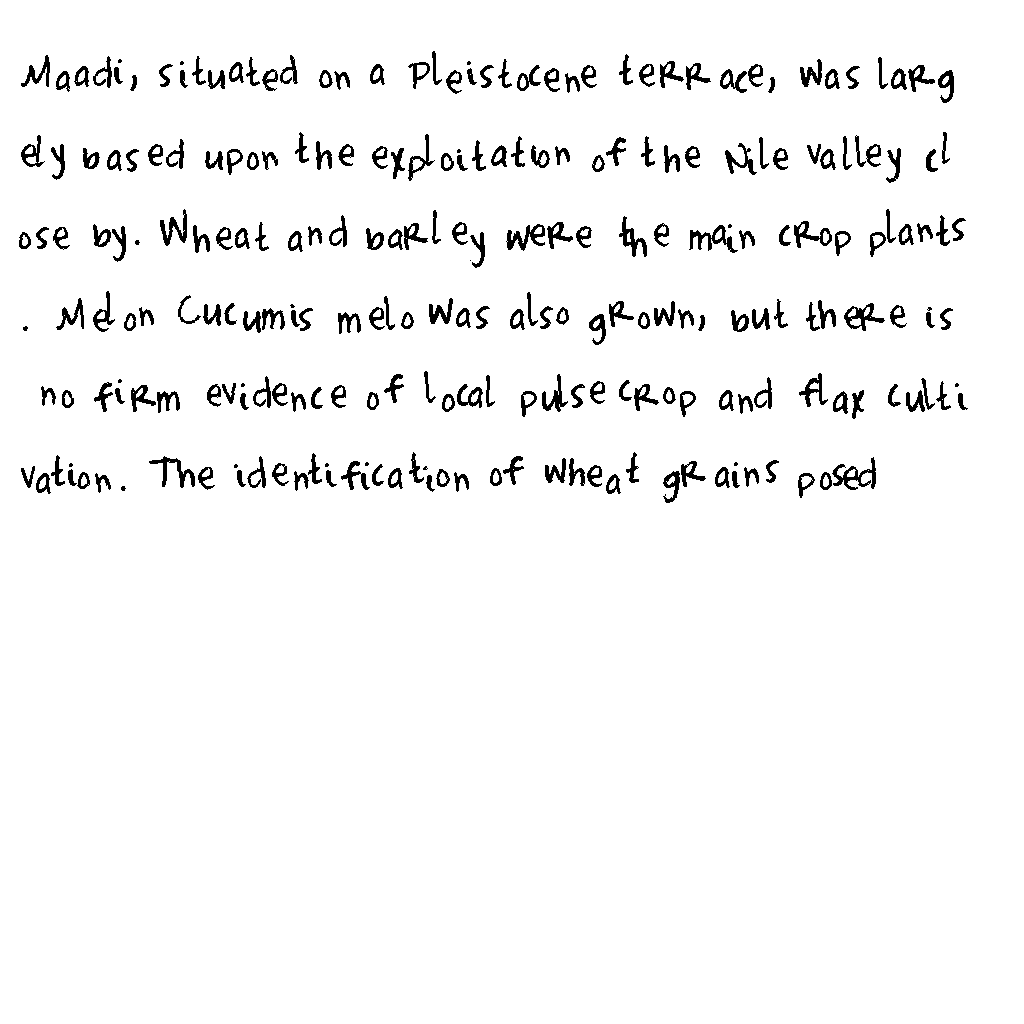 Maadi, situated on a Pleistocene terrace, was larg
ely based upon the exploitation of the Nile valley cl
ose by. Wheat and barley were the main crop plants
. Melon Cucumis melo was also grown, but there is
no firm evidence of local pulse crop and flax culti
vation. The identification of wheat grains posed